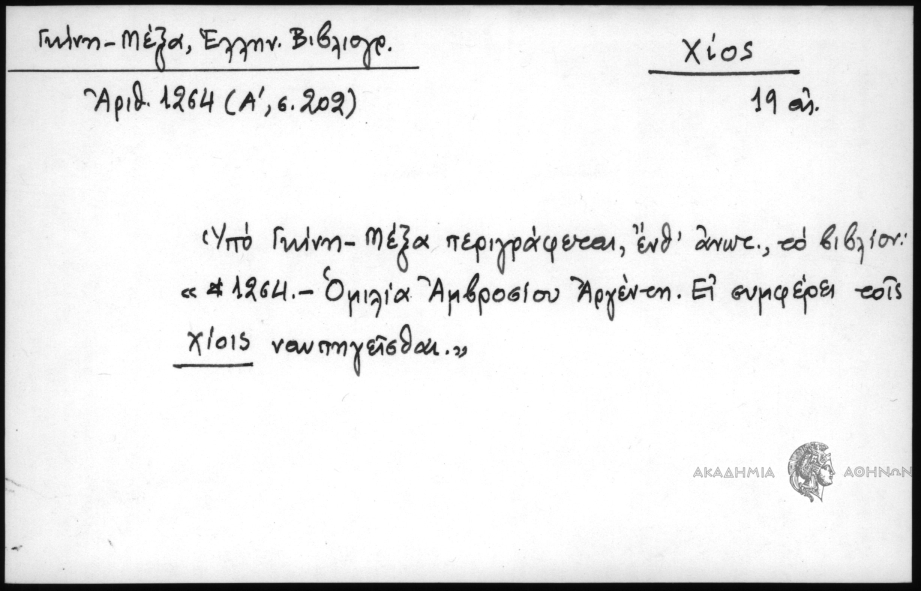 Γκίνη-Μέξα, Ἑλλην. Βιβλιογρ.
Χίος
Ἀριθ. 1264 (Α', σ. 202)
19 αἰ.
Ὑπό Γκίνη-Μέξα περιγράφεται, ἔνθ' ἀνωτ., τό βιβλίον:
« * 1264.- Ὁμιλία Ἀμβροσίου Ἀργέντη. Εἰ συμφέρει τοῖς
Χίοις ναυπηγεῖσθαι.»
ΑΚΑΔΗΜΙΑ ΑΘΗΝΩΝ